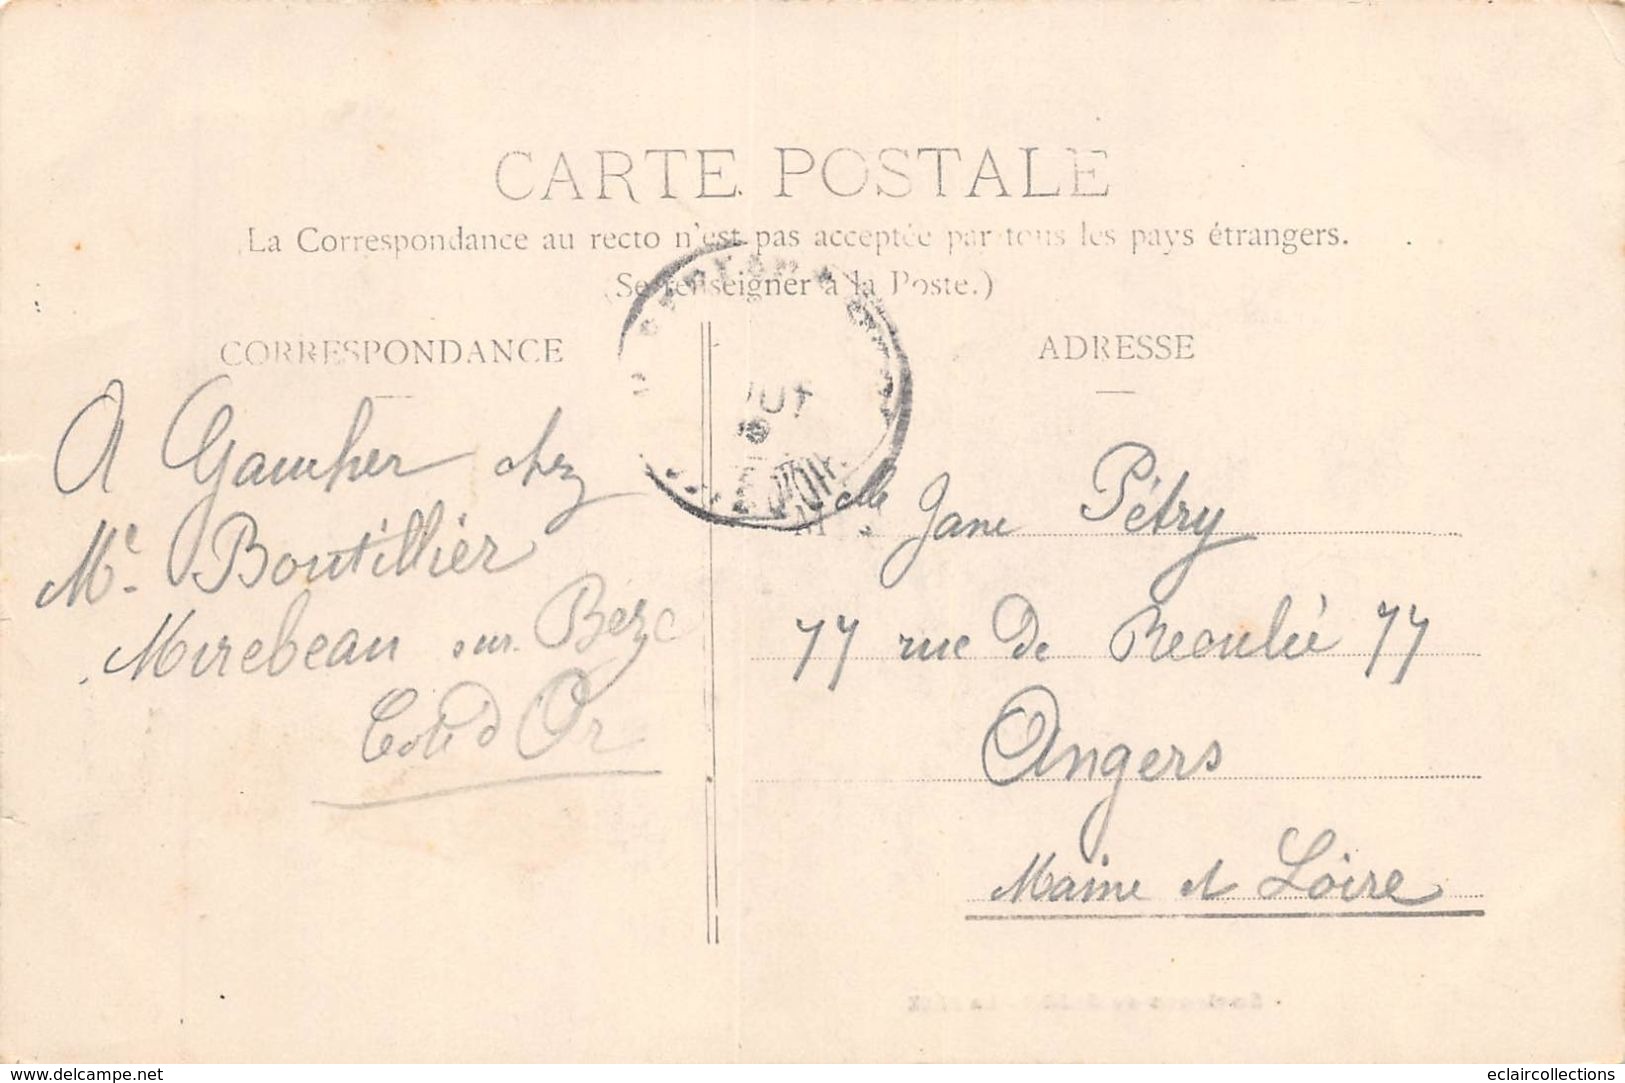 CARTE POSTALE
La Correspondance au recto n'est pas acceptée par tous les pays étrangers.
(Se renseigner à la Poste.)
CORRESPONDANCE
A Gaucher chez
Mr. Boutillier
Mirebeau sur Beze
Cote d Or
ADRESSE
M
elle Jane Pétry
77 rue De 77
Angers
Maine et Loire
UT
www.delcampe.net
eclaircollections